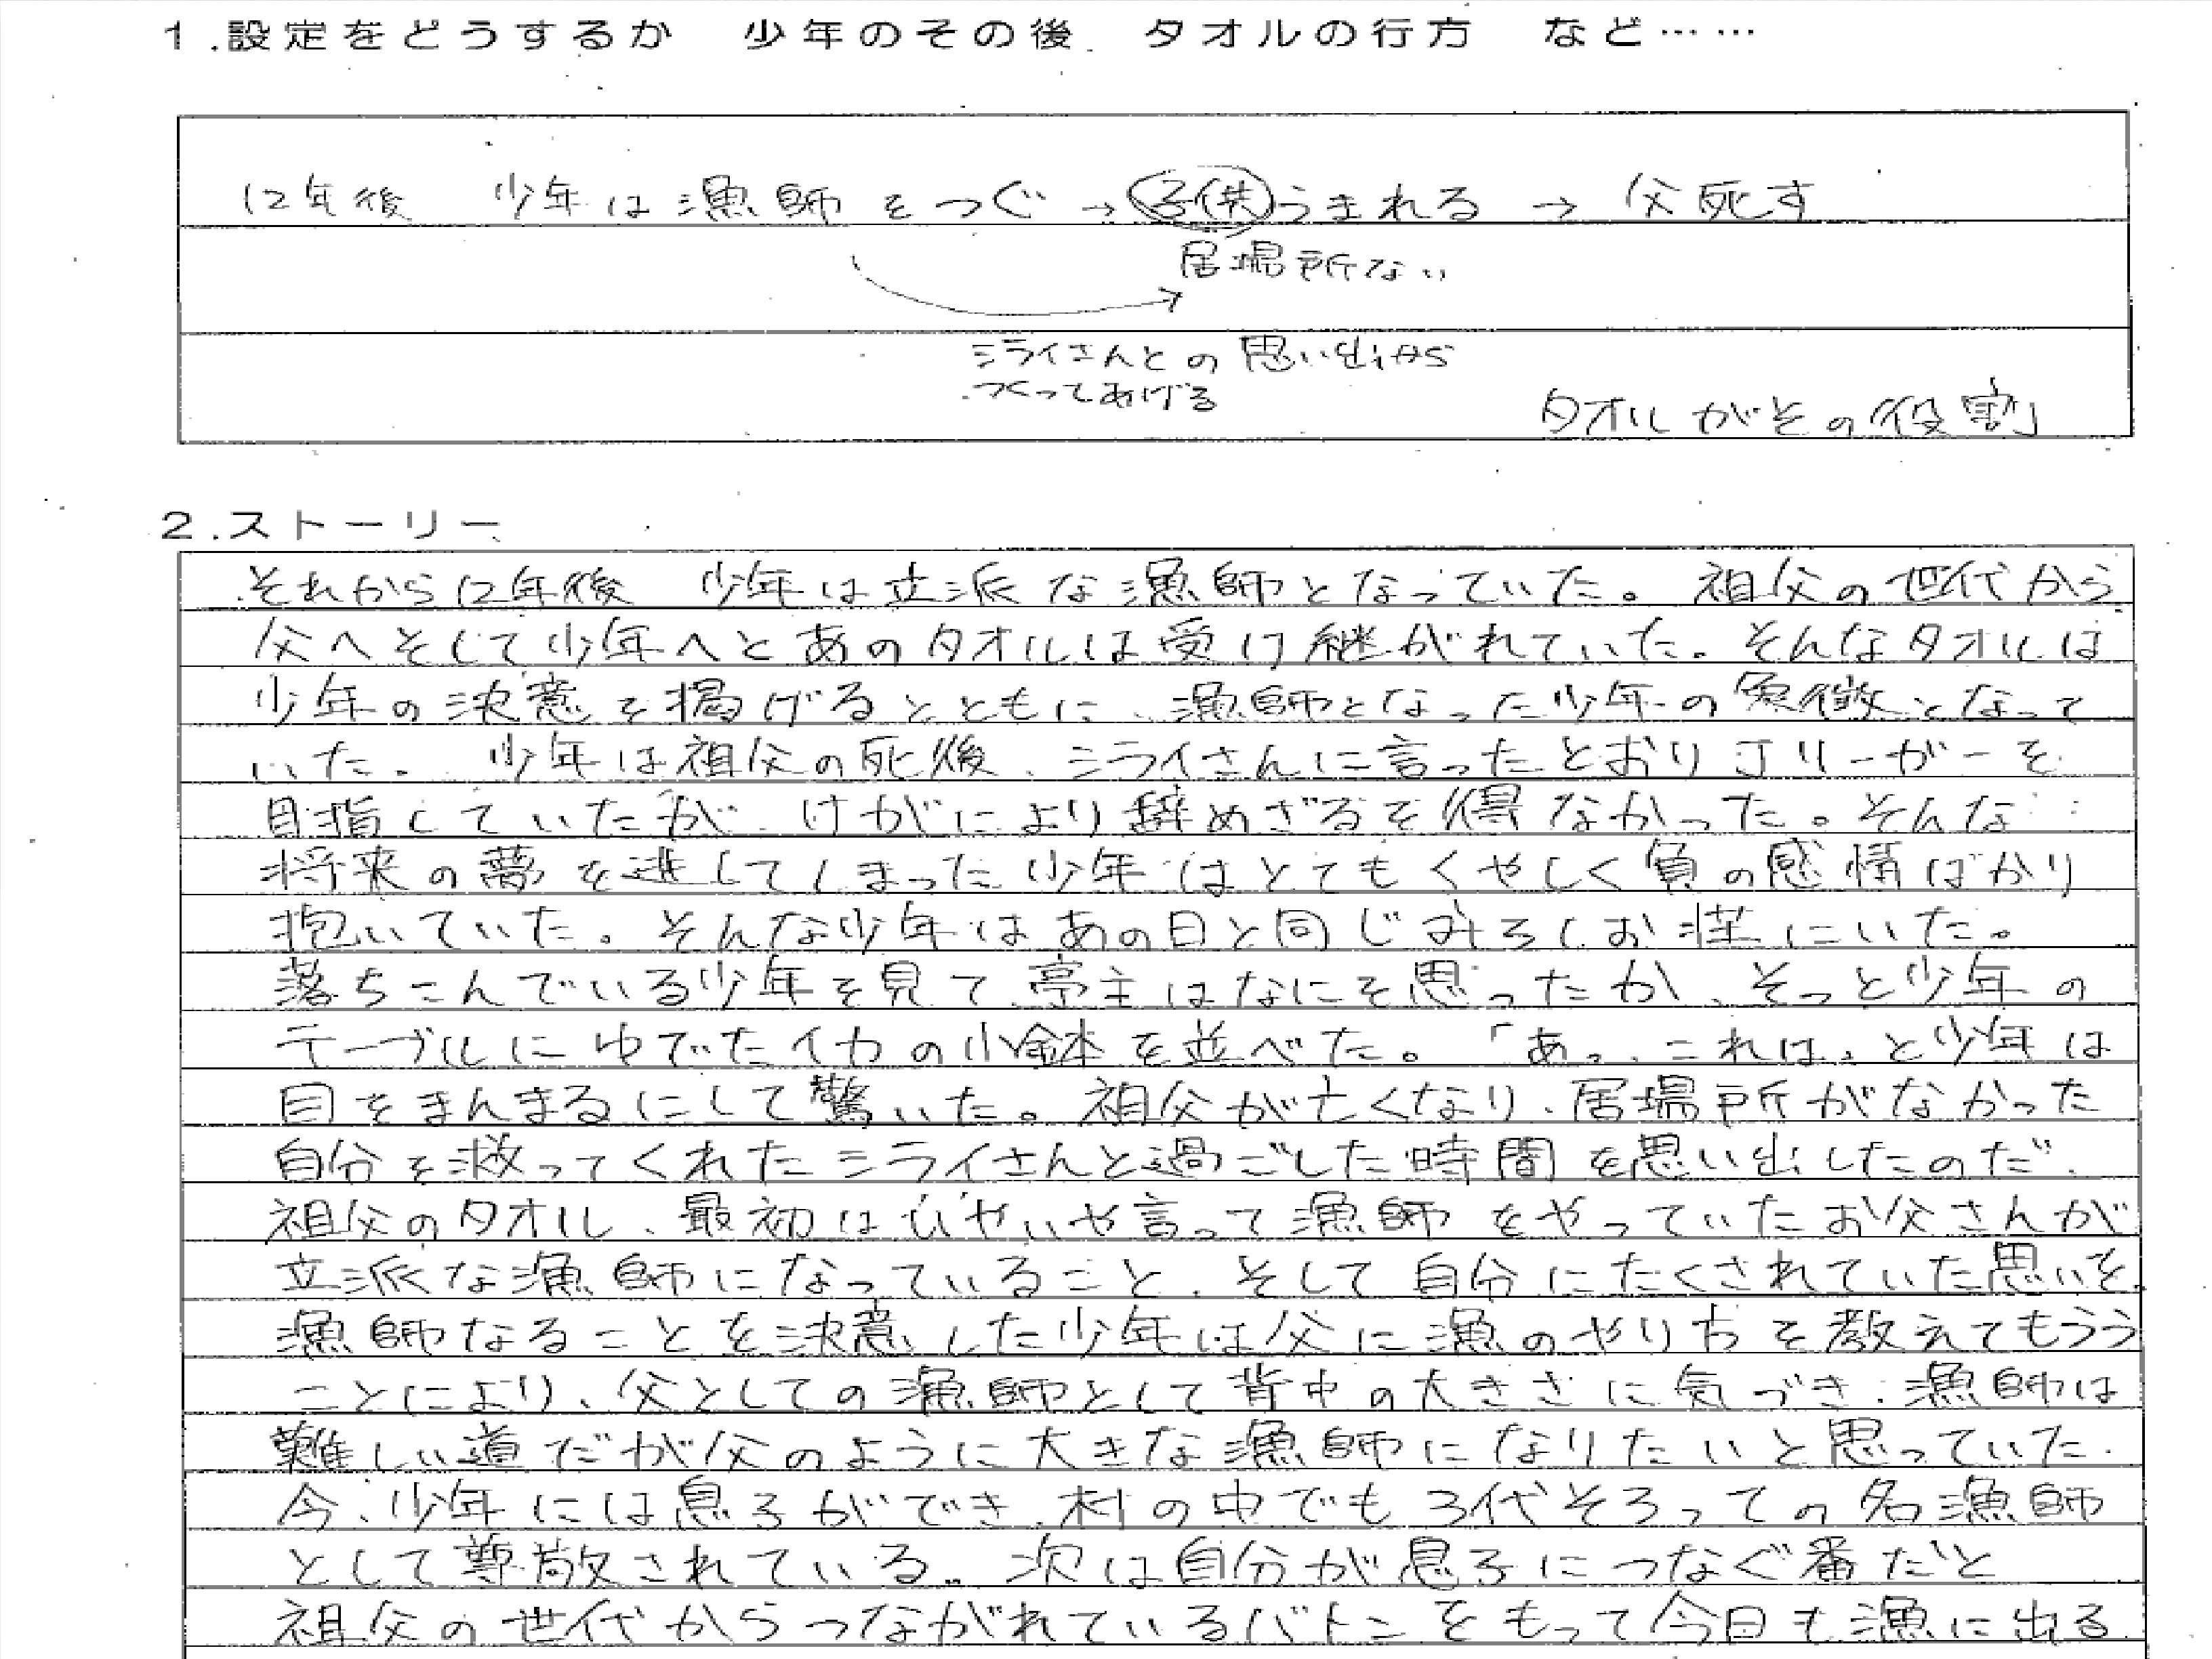 1.設定をどうするか　少年のその後　タオルの行方　など……
12年後　少年は漁師をつぐ→子供うまれる→父死す
居場所ない
ミライさんとの思い出から
つくってあげる
タオルがその役割
2.ストーリー
それから12年後　少年は立派な漁師となっていた。祖父の世代から
父へそして少年へとあのタオルは受け継がれていた。そんなタオルは
少年の決意を掲げるとともに、漁師となった少年の象徴となって
いた。少年は祖父の死後、ミライさんに言ったとおりJリーガーを
目指していたが、けがにより辞めざるを得なかった。そんな
将来の夢を逃してしまった少年はとてもくやしく負の感情ばかり
抱いていた。そんな少年はあの日と同じみろしお荘にいた。
落ちこんでいる少年を見て亭主はなにを思ったか、そっと少年の
テーブルにゆでたイカの小鉢を並べた。「あ。、これは。と少年は
目をまんまるにして驚いた。祖父が亡くなり、居場所がなかった
自分を救ってくれたミライさんと過ごした時間を思い出したのだ。
祖父のタオル、最初はいやいや言って漁師をやっていたお父さんが
立派な漁師になっていること、そして自分にたくされていた思いを
漁師なることを決意した少年は父に漁のやり方を教えてもうう
ことにより、父としての漁師として背中の大きさに気づき、漁師は
難しい道だが父のように大きな漁師になりたいと思っていた。
今、少年には息子ができ、村の中でも3代そろっての名漁師
として尊敬されている。次は自分が息子につなぐ番だと
祖父の世代からつながれているバトンをもって今日も漁に出る